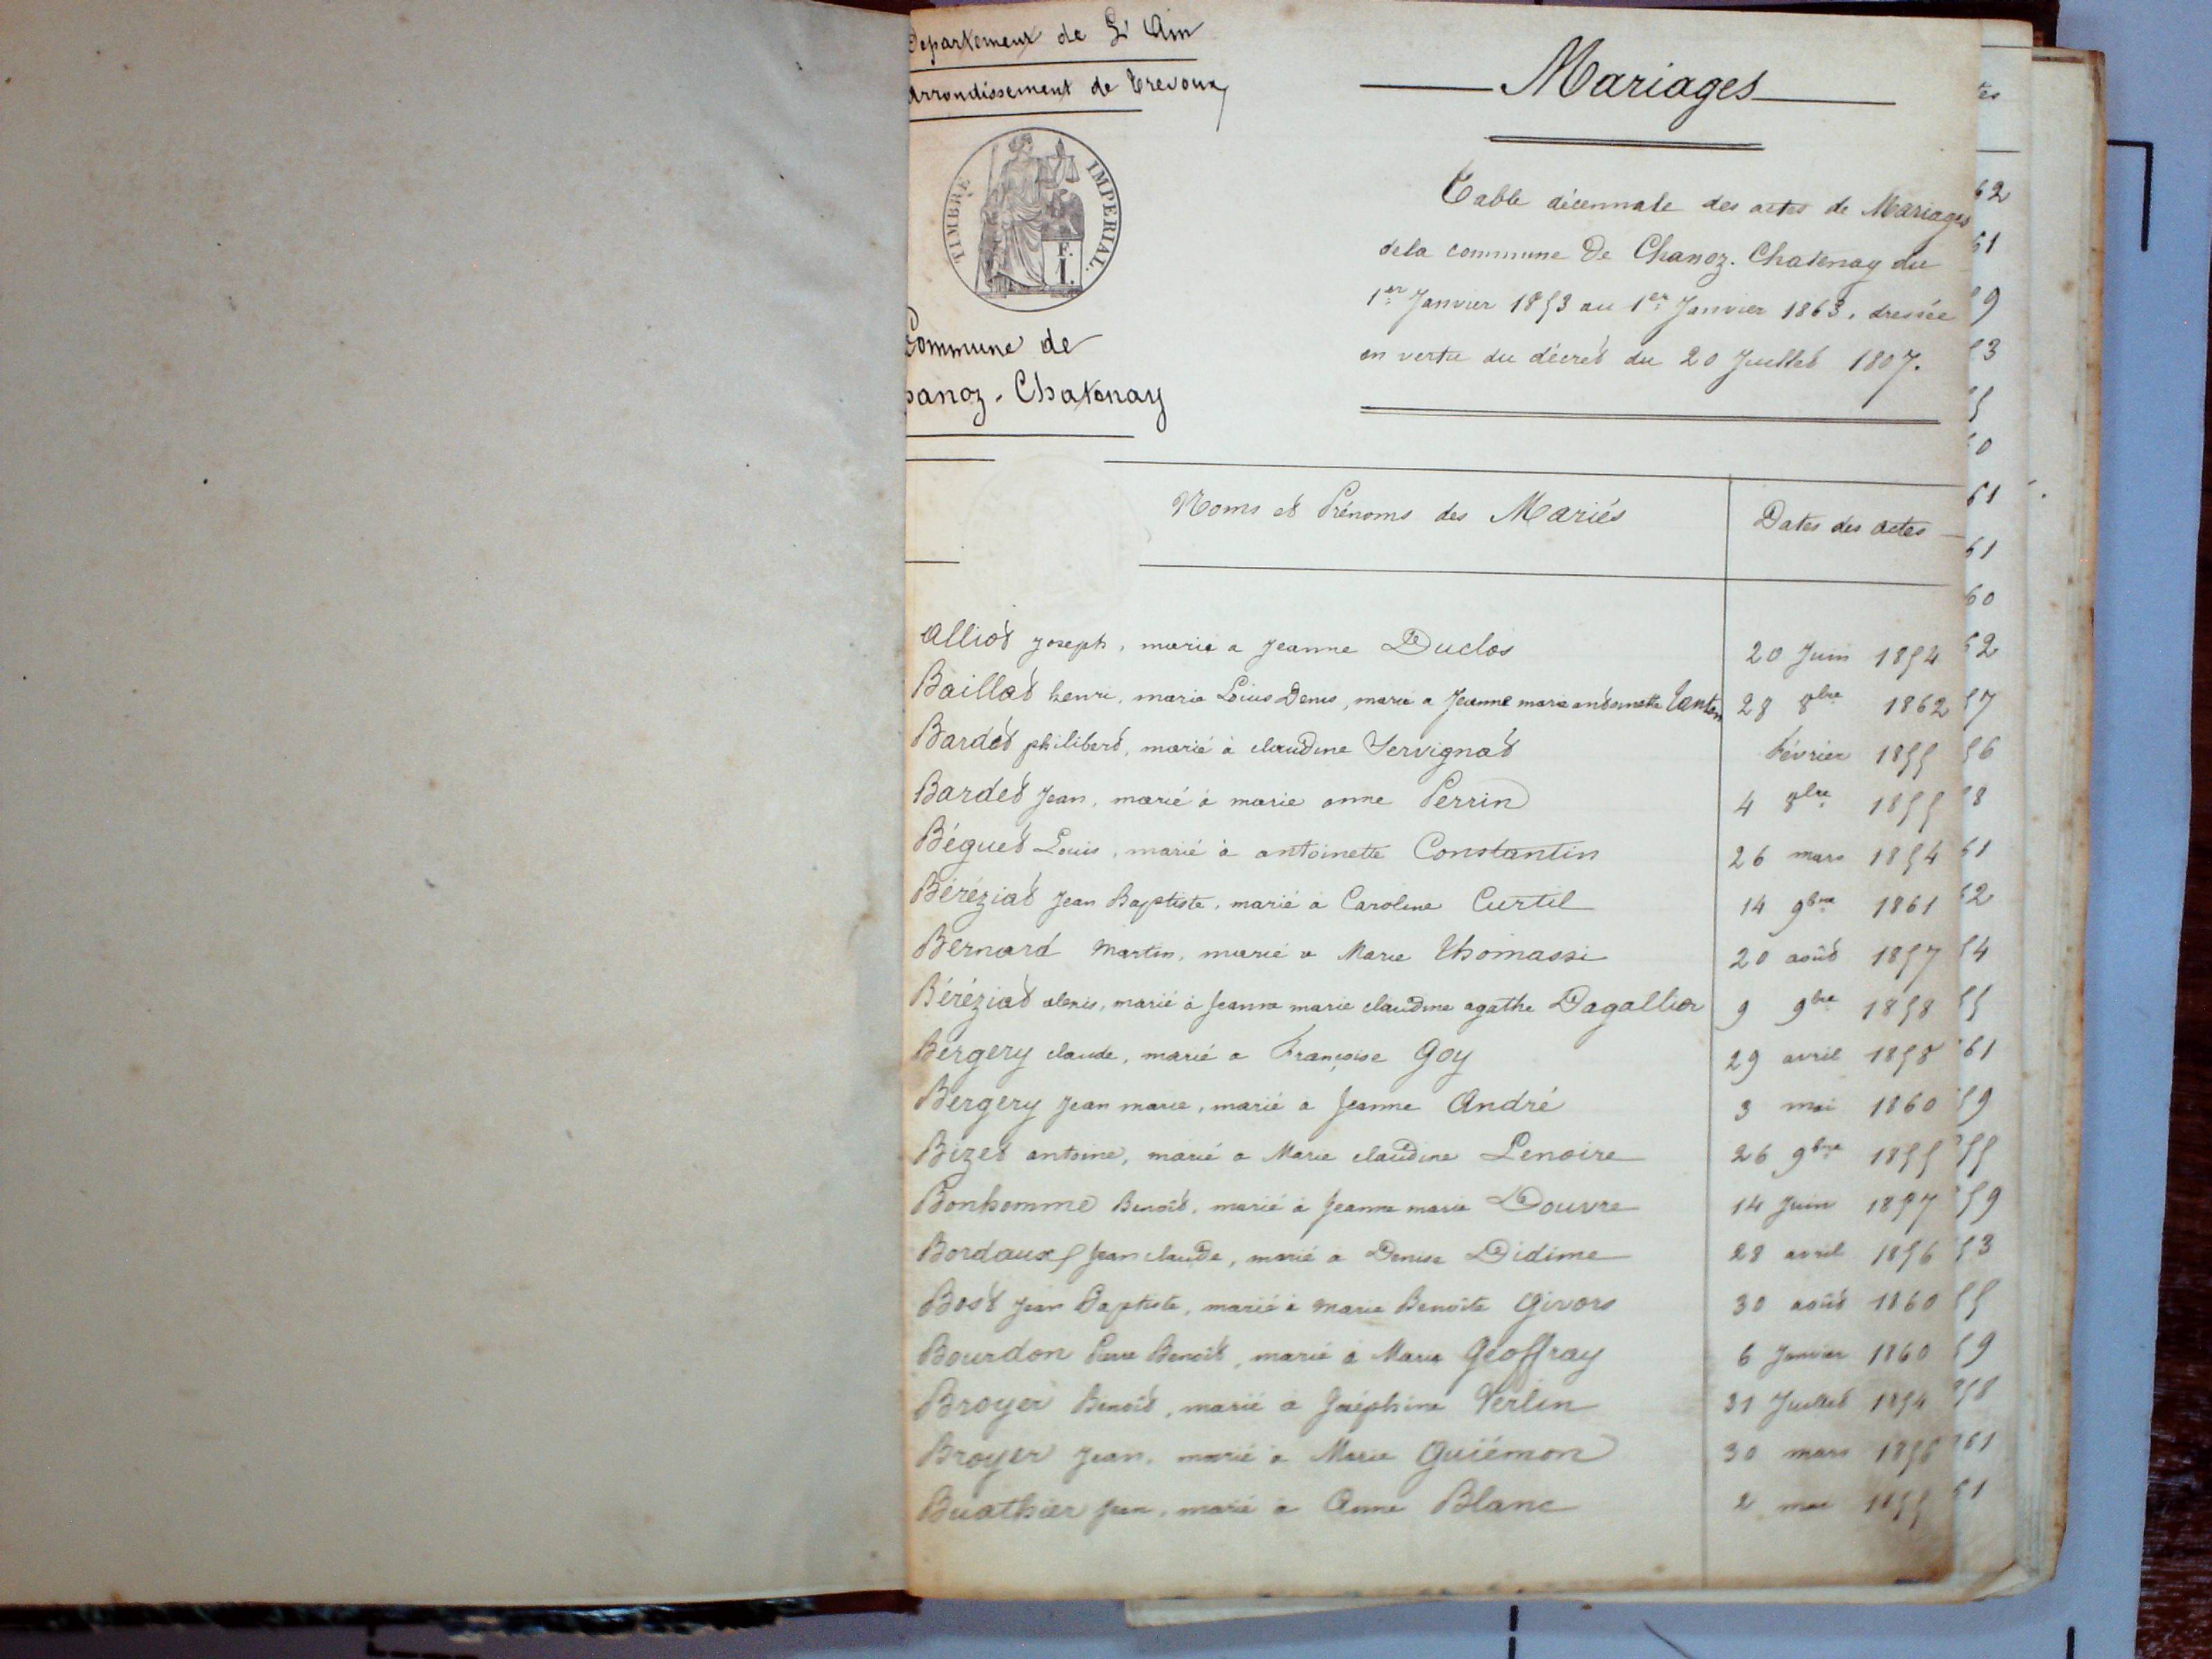 Departement de L'Ain
Arrondissement de Trevoux
TIMBRE IMPERIAL.
F.
I.
Commune de
hanoz-Chatenay
Mariages
Table décennale des actes de Mariages
de la commune De Chanoz-Chatenay du
1er Janvier 1853 au 1er Janvier 1863, dressée
en vertu du décret du 20 Juillet 1807.
Noms et Prénoms des Mariés Dates des actes
Alliot Joseph, marié a Jeanne Duclos 20 Juin 1854
Baillat henri, marie Louis Denis, marié a Jeanne marie antoinette 28 8bre 1862
Bardet philibert, marié à claudine Servignat Février 1855
Bardet Jean, marié à marie anne Perrin 4 8bre 1855
Béguet Louis, marié à antoinette Constantin 26 mars 1854
Béréziat Jean Baptiste, marié à Caroline Curtil 14 9bre 1861
Bernard Martin, marié a Marie Thomassi 20 août 1857
Béréziat alexis, marié à Jeanne marie claudine agathe Dagallier 9 9bre 1858
Bergery claude, marié a Françoise Goy 29 avril 1858
Bergery Jean marie, marié a Jeanne André 3 mai 1860
Bizet antoine, marié a Marie claudine Lenoire 26 9bre 1855
Bonhomme Benoît, marié à Jeanne marie Douvre 14 Juin 1857
Bordaux Jean claude, marié a Denise Didime 28 avril 1856
Bost Jean Baptiste, marié à Marie Benoîte Givors 30 août 1860
Bourdon Pierre Benoît, marié à Marie Geoffray 6 Janvier 1860
Broyer Benoît, marié a Joséphine Verlin 31 Juillet 1854
Broyer Jean, marié à Marie Guiémon 30 mars 1856
Buathier Jean, marié à Anne Blanc 2 mai 1855